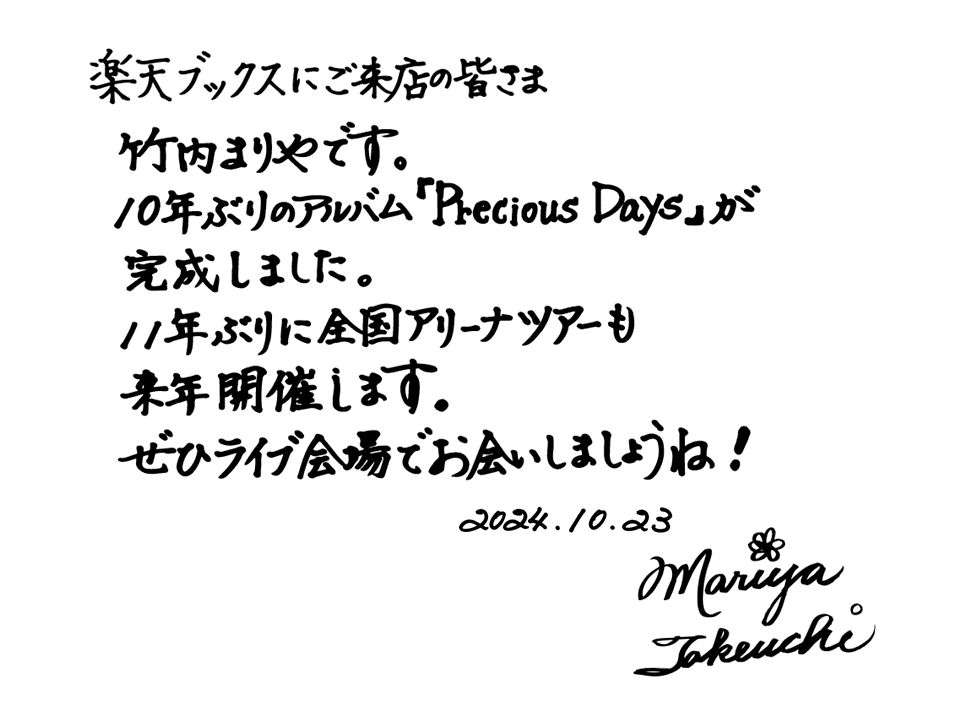 楽天ブックスにご来店の皆さま
竹内まりやです。
10年ぶりのアルバム『Precious Days』が
完成しました。
11年ぶりに全国アリーナツアーも
来年開催します。
ぜひライブ会場でお会いしましょうね！
2024.10.23
Mariya
Takeuchi